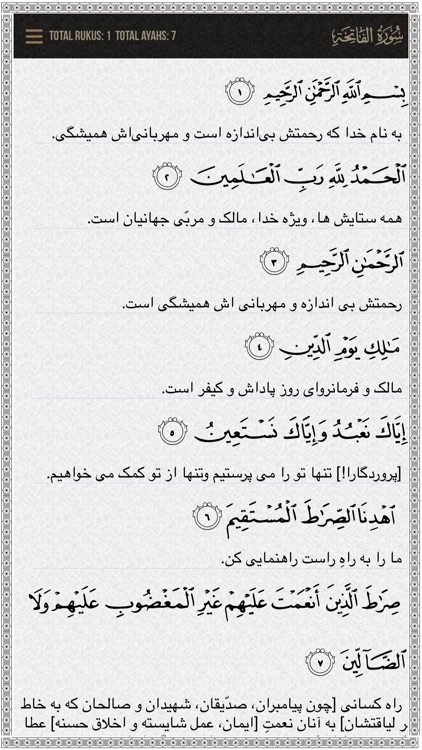 TOTAL RUKUS: 1 TOTAL AYAHS: 7 سُورَةُ الفَاتِحَةِ
بِسْمِ ٱللَّهِ ٱلرَّحْمَٰنِ ٱلرَّحِيمِ ١
به نام خدا که رحمتش بی‌اندازه است و مهربانی‌اش همیشگی.
ٱلْحَمْدُ لِلَّهِ رَبِّ ٱلْعَٰلَمِينَ ٢
همه ستایش ها، ویژه خدا، مالک و مربّی جهانیان است.
ٱلرَّحْمَٰنِ ٱلرَّحِيمِ ٣
رحمتش بی اندازه و مهربانی اش همیشگی است.
مَٰلِكِ يَوْمِ ٱلدِّينِ ٤
مالک و فرمانروای روز پاداش و کیفر است.
إِيَّاكَ نَعْبُدُ وَإِيَّاكَ نَسْتَعِينُ ٥
[پروردگارا!] تنها تو را می پرستیم وتنها از تو کمک می خواهیم.
ٱهْدِنَا ٱلصِّرَٰطَ ٱلْمُسْتَقِيمَ ٦
ما را به راهِ راست راهنمایی کن.
صِرَٰطَ ٱلَّذِينَ أَنْعَمْتَ عَلَيْهِمْ غَيْرِ ٱلْمَغْضُوبِ عَلَيْهِمْ وَلَا
ٱلضَّآلِّينَ ٧
راه کسانی [چون پیامبران، صدّیقان، شهیدان و صالحان که به خاط
ر لیاقتشان] به آنان نعمتِ [ایمان، عمل شایسته و اخلاق حسنه] عطا